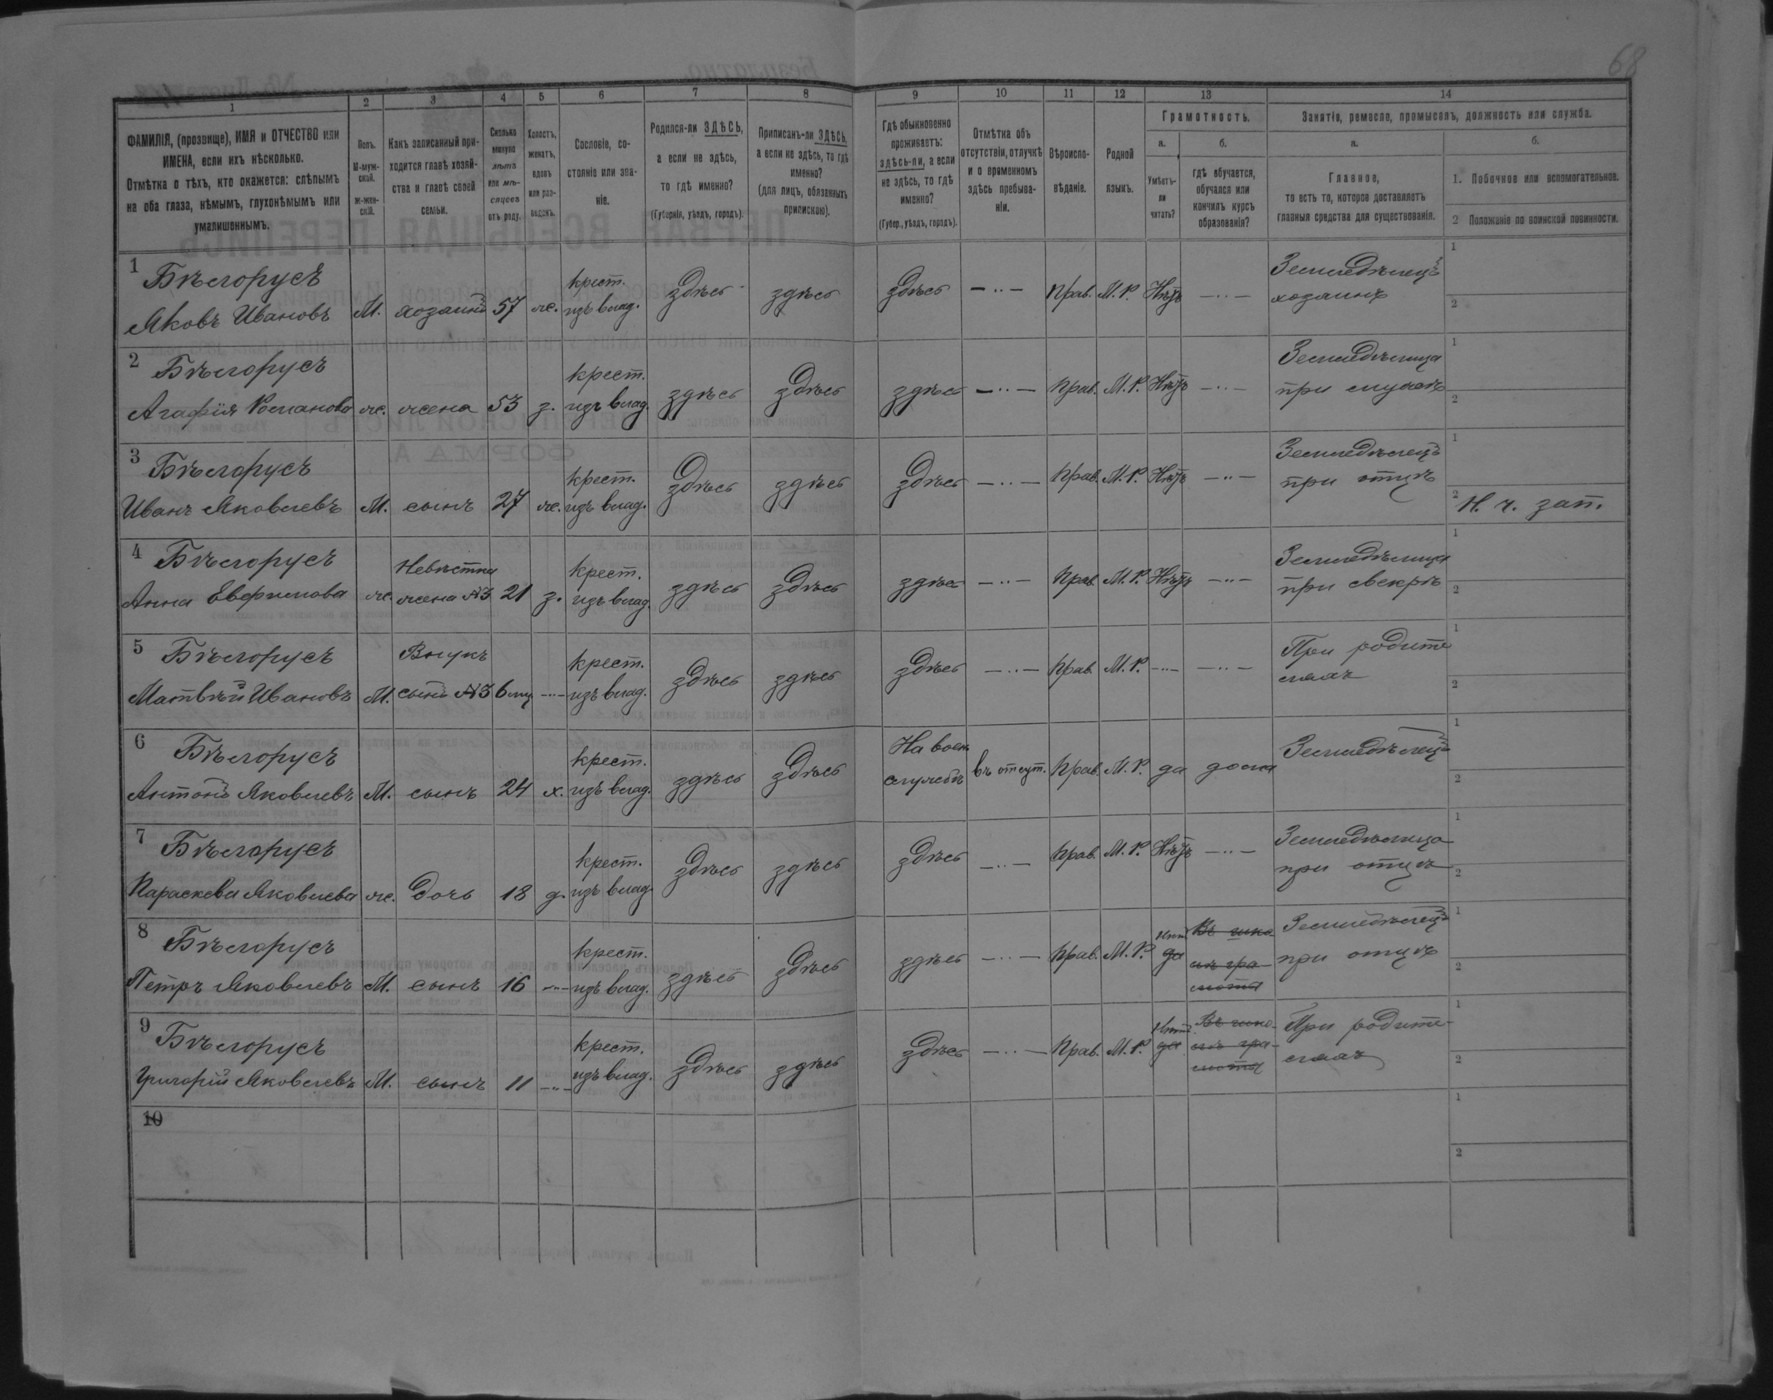 68
1 2 3 4 5 6 7 8 9 10 11 12 13 14
ФАМИЛІЯ, (прозвище), ИМЯ и ОТЧЕСТВО или ИМЕНА, если ихъ нѣсколько.
Отмѣтка о тѣхъ, кто окажется: слѣпымъ на оба глаза, нѣмымъ, глухонѣмымъ или умалишеннымъ.
Полъ.
М-мужской.
Ж-женскій.
Какъ записанный приходится главѣ хозяйства и главѣ своей семьи.
Сколько минуло лѣтъ или мѣсяцевъ отъ роду.
Холостъ, женатъ, вдовъ или разведенъ.
Сословіе, состояніе или званіе.
Родился-ли ЗДѢСЬ, а если не здѣсь, то гдѣ именно?
(Губернія, уѣздъ, городъ).
Приписанъ-ли ЗДѢСЬ, а если не здѣсь, то гдѣ именно?
(для лицъ, обязанныхъ припискою).
Гдѣ обыкновенно проживаетъ: здѣсь-ли, а если не здѣсь, то гдѣ именно?
(Губер., уѣздъ, городъ).
Отмѣтка объ отсутствіи, отлучкѣ и о временномъ здѣсь пребываніи.
Вѣроисповѣданіе.
Родной языкъ.
Грамотность.
а. Умѣетъ-ли читать?
б. гдѣ обучается, обучался или кончилъ курсъ образованія?
Занятіе, ремесло, промыселъ, должность или служба.
а. Главное,
то есть то, которое доставляетъ главныя средства для существованія.
б.
1. Побочное или вспомогательное.
2 Положеніе по воинской повинности.
1 Бѣлорусъ крест. Земледѣлецъ 1
Яковъ Ивановъ М. хозяинъ 57 ж. изъ влад. здѣсь здѣсь здѣсь — ·· — Прав. М. Р. Нѣтъ — ·· — хозяинъ 2
2 Бѣлорусъ крест. Земледѣлица 1
Агафія Романова ж. жена 53 з. изъ влад. здѣсь здѣсь здѣсь — ·· — Прав. М. Р. Нѣтъ — ·· — при мужѣ 2
3 Бѣлорусъ крест. Земледѣлецъ 1
Иванъ Яковлевъ М. сынъ 27 ж. изъ влад. здѣсь здѣсь здѣсь — ·· — Прав. М. Р. Нѣтъ — ·· — при отцѣ 2 Н. ч. зап.
4 Бѣлорусъ Невѣстка крест. Земледѣлица 1
Анна Евфимова ж. жена №3 21 з. изъ влад. здѣсь здѣсь здѣсь — ·· — Прав. М. Р. Нѣтъ — ·· — при свекрѣ 2
5 Бѣлорусъ Внукъ крест. При родите 1
Матвѣй Ивановъ М. сынъ №3 6 мц — ·· — изъ влад. здѣсь здѣсь здѣсь — ·· — Прав. М. Р. — ·· — — ·· — ляхъ 2
6 Бѣлорусъ крест. На воен. Земледѣлецъ 1
Антонъ Яковлевъ М. сынъ 24 х. изъ влад. здѣсь здѣсь службѣ въ отсут. Прав. М. Р. да дома 2
7 Бѣлорусъ крест. Земледѣлица 1
Параскева Яковлева ж. дочь 18 д. изъ влад. здѣсь здѣсь здѣсь — ·· — Прав. М. Р. Нѣтъ — ·· — при отцѣ 2
8 Бѣлорусъ крест. нѣтъ Въ шко Земледѣлецъ 1
Петръ Яковлевъ М. сынъ 16 — ·· — изъ влад. здѣсь здѣсь здѣсь — ·· — Прав. М. Р. да лѣ гра- при отцѣ 2
моты
9 Бѣлорусъ крест. нѣтъ Въ шко- При родите- 1
Григорій Яковлевъ М. сынъ 11 — ·· — изъ влад. здѣсь здѣсь здѣсь — ·· — Прав. М. Р. да лѣ гра- ляхъ 2
моты
10 1
2